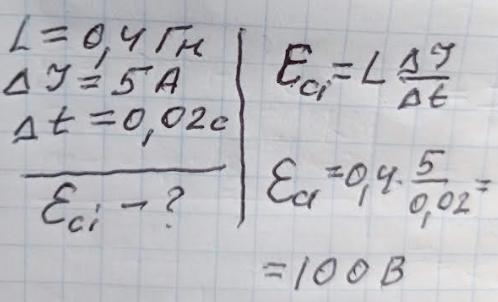 L = 0,4 Гн
Δ I = 5 А
Δ t = 0,02 с
Ɛci – ?
Ɛci = L ΔI/Δt
Ɛci = 0,4 · 5/0,02 =
= 100 В